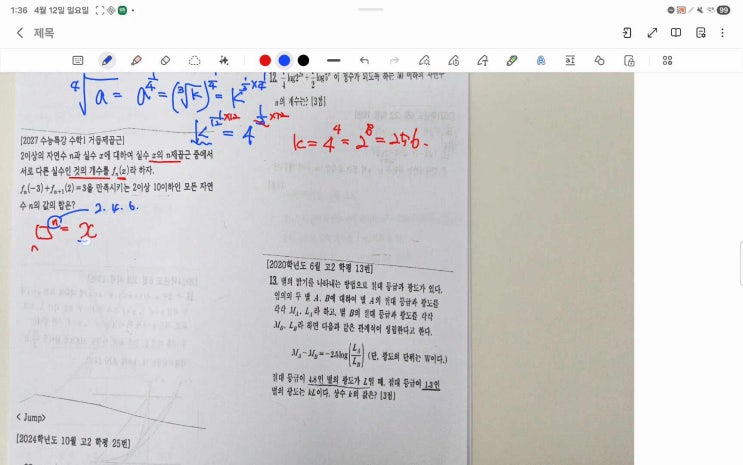 1:36 4월 12일 일요일
99
제목
⁴√a = a^(1/4) = (³√k)^(1/4) = k^(1/3 × 1/4)
k^(1/12 ×12) = 4^(1/3 ×12)
[2027 수능특강 수학1 거듭제곱근]
2이상의 자연수 n과 실수 x에 대하여 실수 x의 n제곱근 중에서
서로 다른 실수인 것의 개수를 fₙ(x)라 하자.
fₙ(-3)+fₙ₊₁(2)=3을 만족시키는 2이상 10이하인 모든 자연
수 n의 값의 합은?
2. 4. 6.
□ⁿ = x
n
< Jump>
[2024학년도 10월 고2 학평 25번]
12.
이 정수가 되도록 하는
이하의 자연수
n의 개수는? [3점]
k = 4⁴ = 2⁸ = 256.
[2020학년도 6월 고2 학평 13번]
13. 별의 밝기를 나타내는 방법으로 절대 등급과 광도가 있다.
임의의 두 별 A, B에 대하여 별 A의 절대 등급과 광도를
각각 M_A, L_A라 하고, 별 B의 절대 등급과 광도를 각각
M_B, L_B라 하면 다음과 같은 관계식이 성립한다고 한다.
M_A-M_B=-2.5log(L_A/L_B) (단, 광도의 단위는 W이다.)
절대 등급이 4.8인 별의 광도가 L일 때, 절대 등급이 1.3인
별의 광도는 kL이다. 상수 k의 값은? [3점]